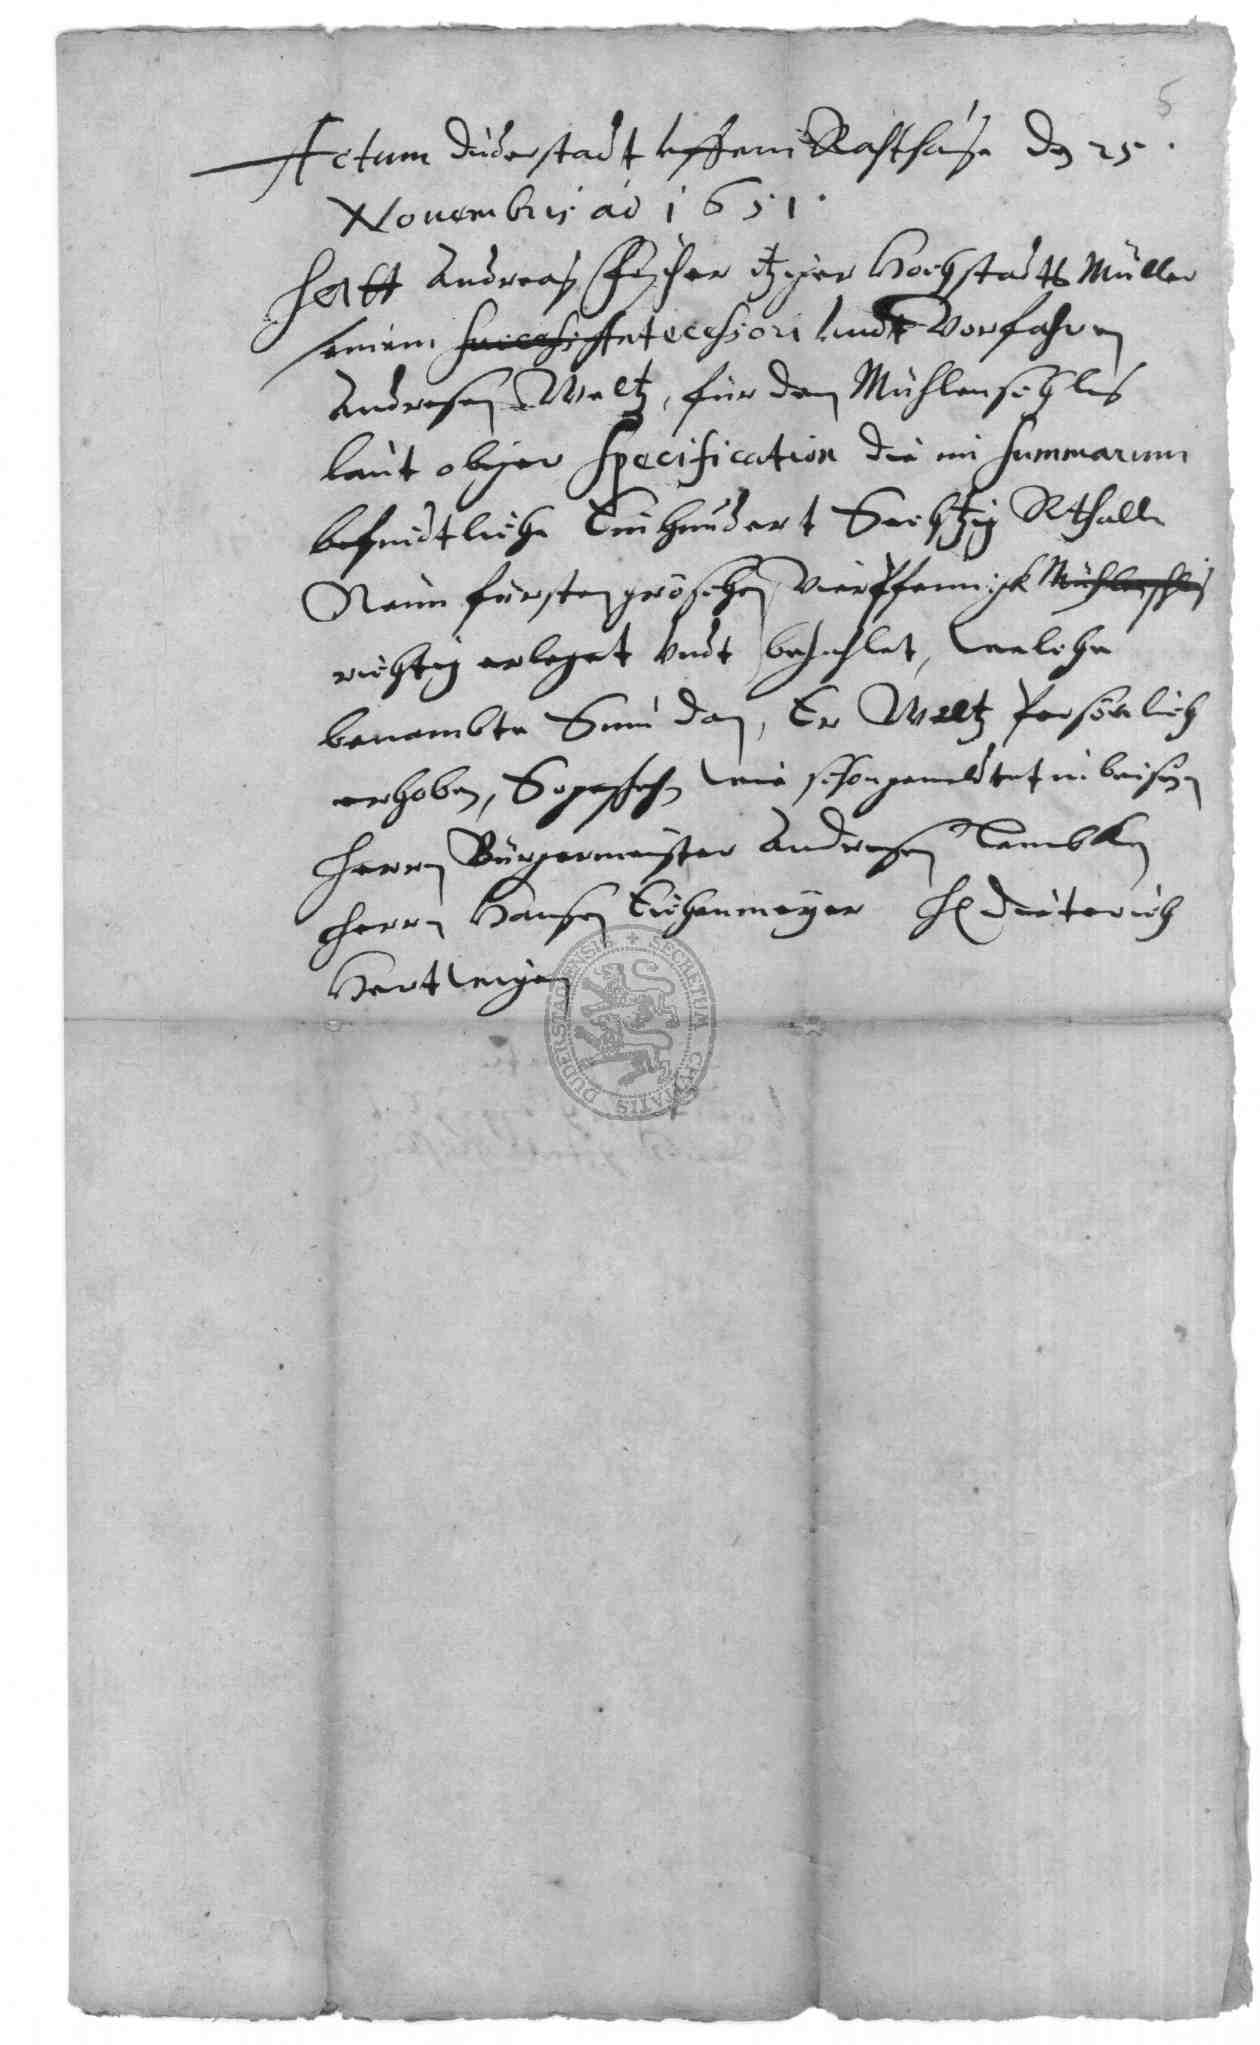 5
Actum Duderstadt uffem Rahthause den 25.
Novembris ao 1651.
Hatt Andreas Fischer itziger Hochstadts Müller
seinem Antecessori undt Vorfahren
Andresen Weltz, für den Mühlenschlis
laut obiger Specification die im summarum
befindtliche Einhundert Sechtzig Rthalle
Neün fürstengröschen Vier Pfennigk
richtig erleget undt bezahlet, welche
benambte Sum dan, Er Weltz Persönlich
erhoben, So geschehen wie schon gemeldtet in beisein
Herrn Bürgermeister Andresen
Herrn Hansen Eichenmeyer H Dieterich
Hartwigen
SECRETUM CIVITATIS DUDERSTADENSIS